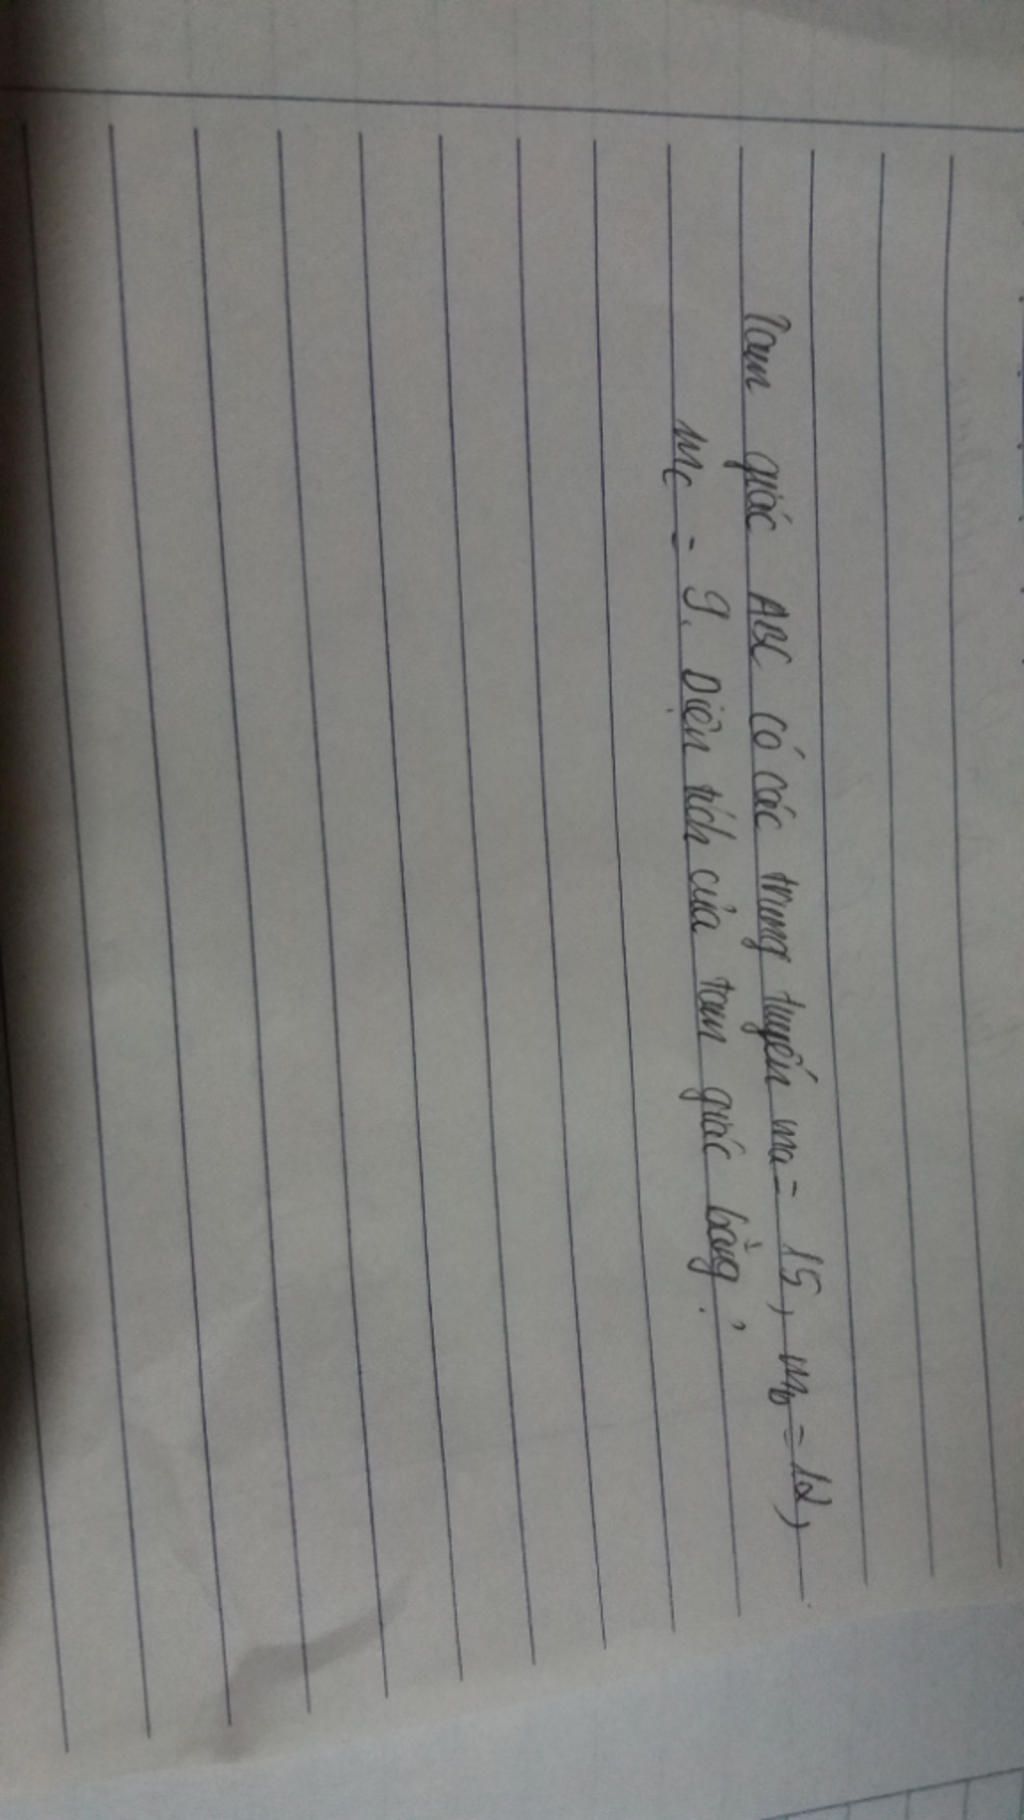 Tam giác ABC có các trung tuyến ma = 15, mb = 12,
mc = 9. Diện tích của tam giác bằng?